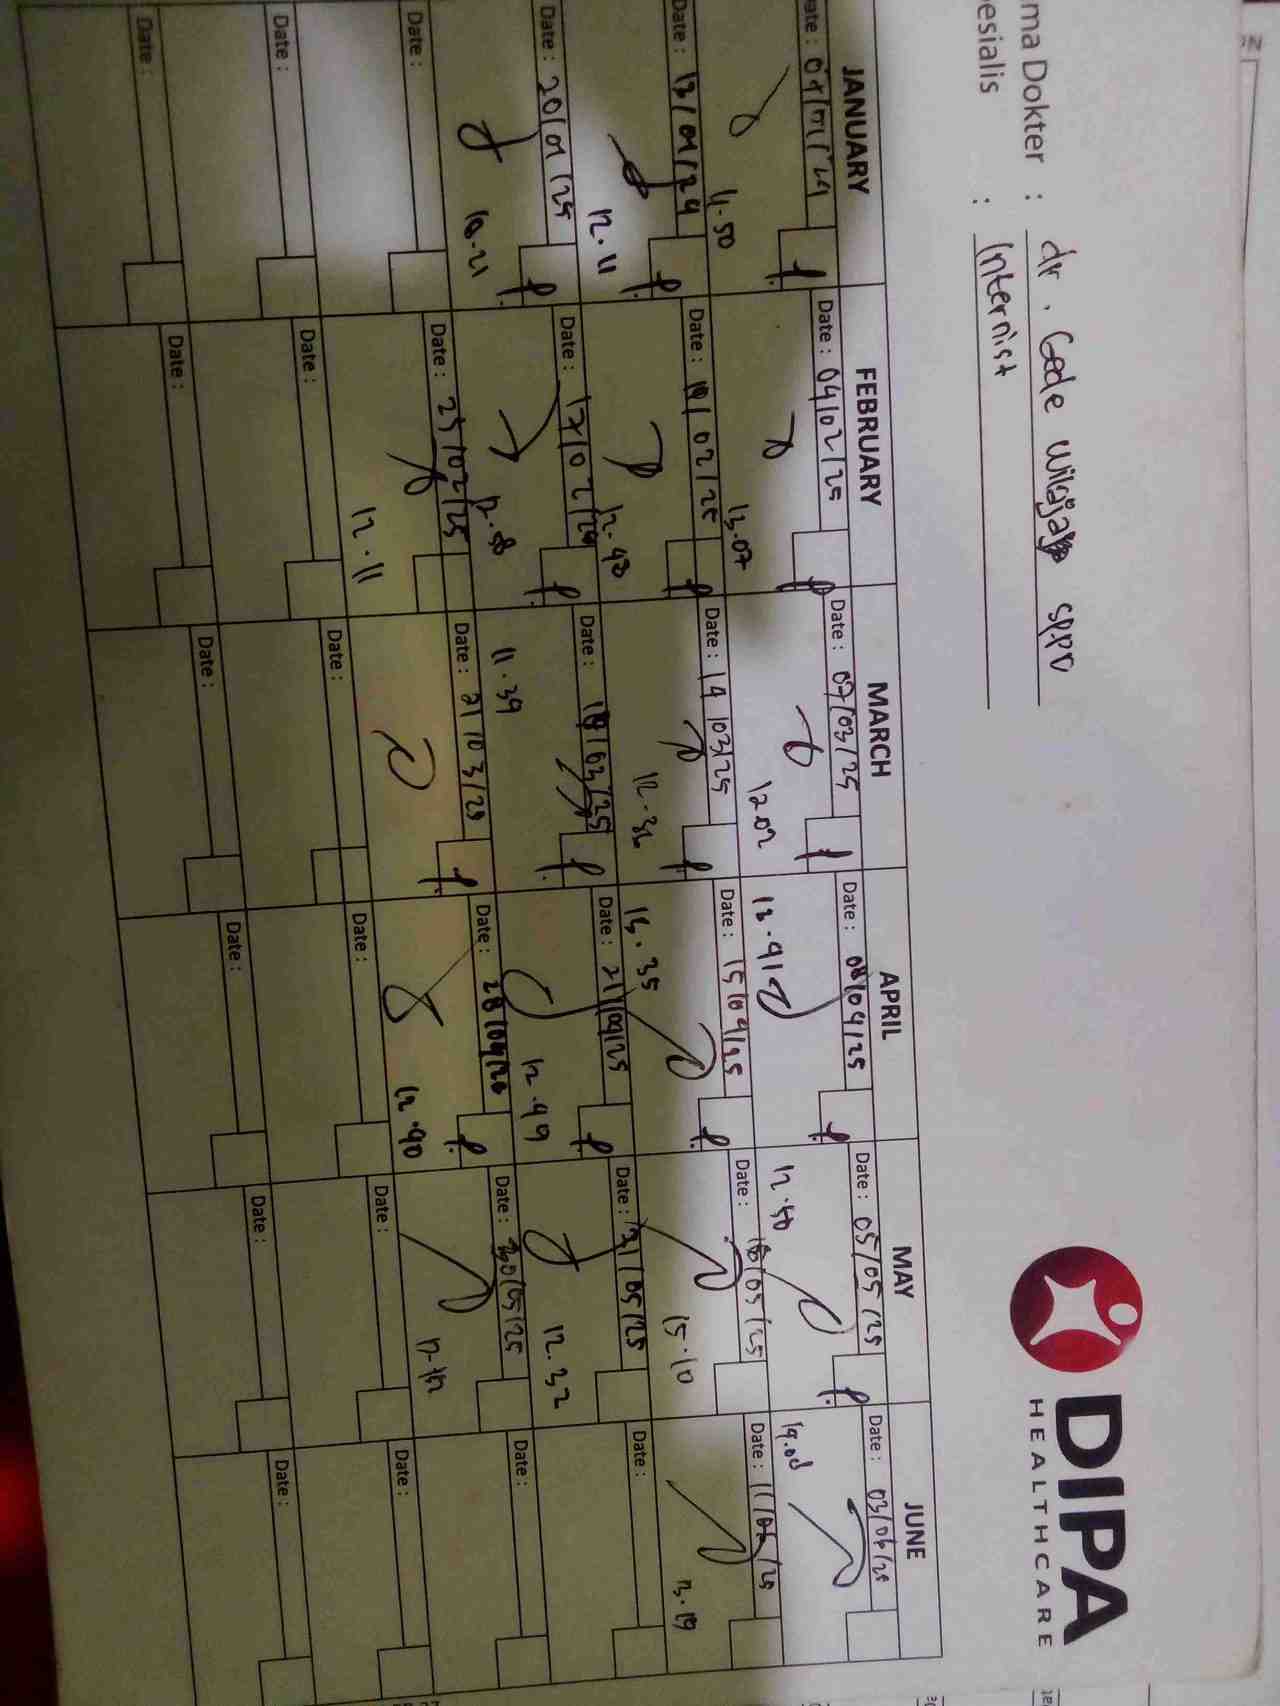 DIPA
HEALTHCARE
ma Dokter : dr. Gede Wijaya SPPD
esialis : Internist
JANUARY FEBRUARY MARCH APRIL MAY JUNE
Date : 04/02/25 Date : 07/03/25 Date : 08/04/25 Date : 05/05/25 Date : 03/06/25
11.50 13.07 12.02 12.41 12.50 14.08
Date : 13/01/24 Date : 10/02/25 Date : 14/03/25 Date : 15/04/25 Date : Date : 11/06/25
12.11 12.40 12.36 13.35 15.10 13.19
Date : 20/01/25 Date : 17/02/24 Date : 18/03/25 Date : 21/04/25 Date : 21/05/25 Date :
10.21 12.58 11.39 12.49 12.32
Date : Date : 25/02/25 Date : 21/03/25 Date : 28/04/20 Date : 30/05/25 Date :
12.11 12.40
Date : Date : Date : Date : Date : Date :
Date : Date : Date : Date : Date : Date :